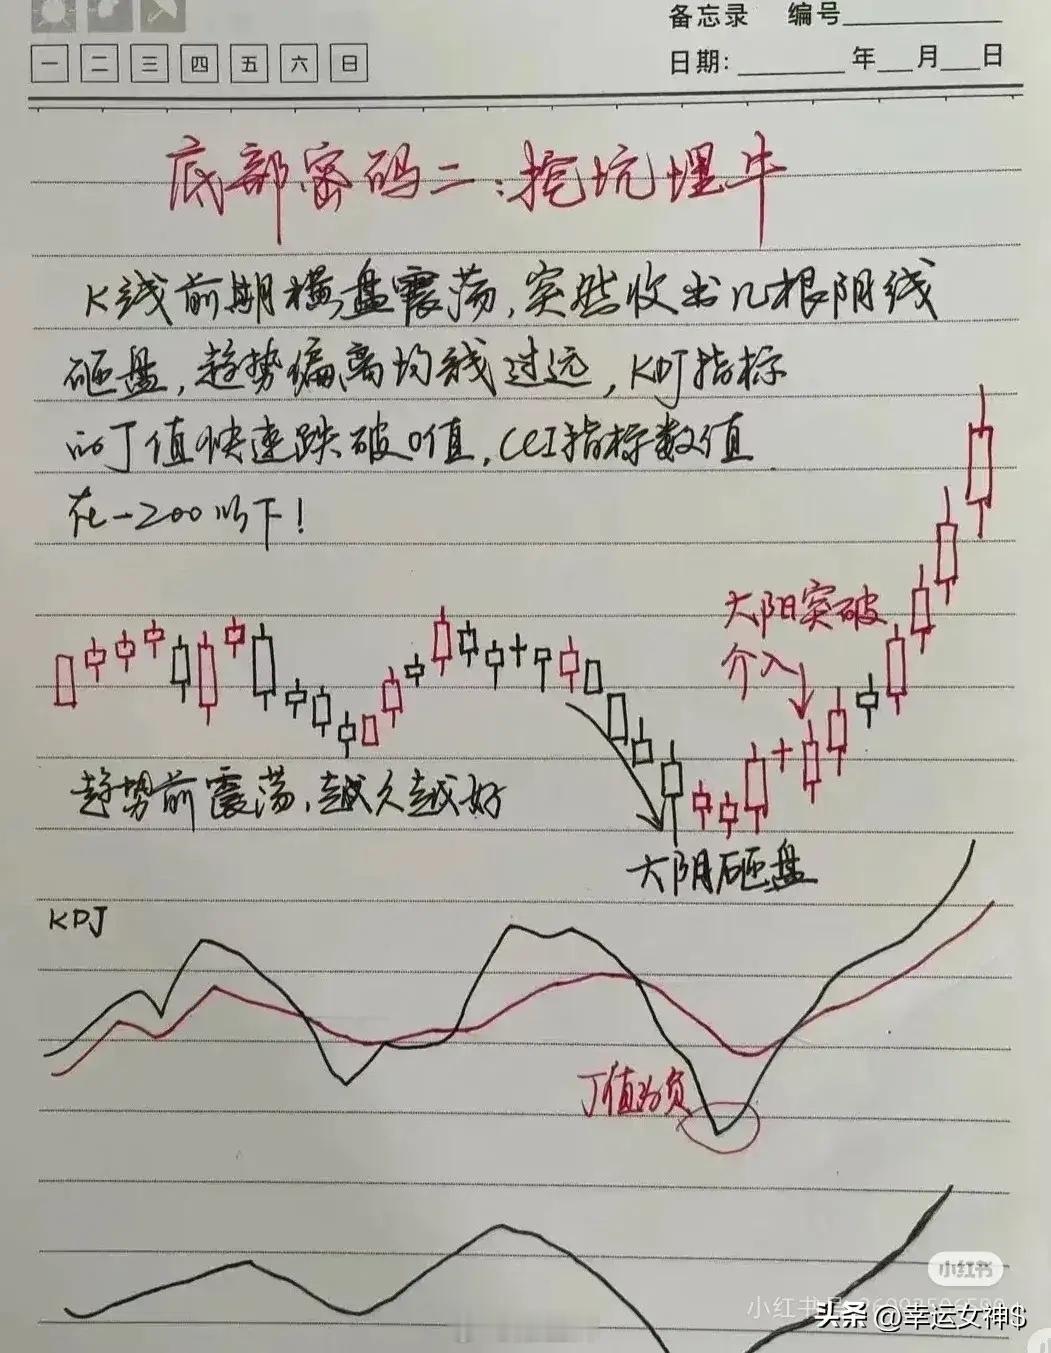 备忘录 编号
一 二 三 四 五 六 日
日期: 年 月 日
底部密码二:挖坑埋牛
K线前期横盘震荡,突然收出几根阴线
砸盘,趋势偏离均线过远,KDJ指标
的J值快速跌破0值,CCI指标数值
在-200以下!
大阳突破
介入
趋势前震荡,越久越好
大阴砸盘
KDJ
J值为负
小红书
小红书号
头条 @幸运女神$